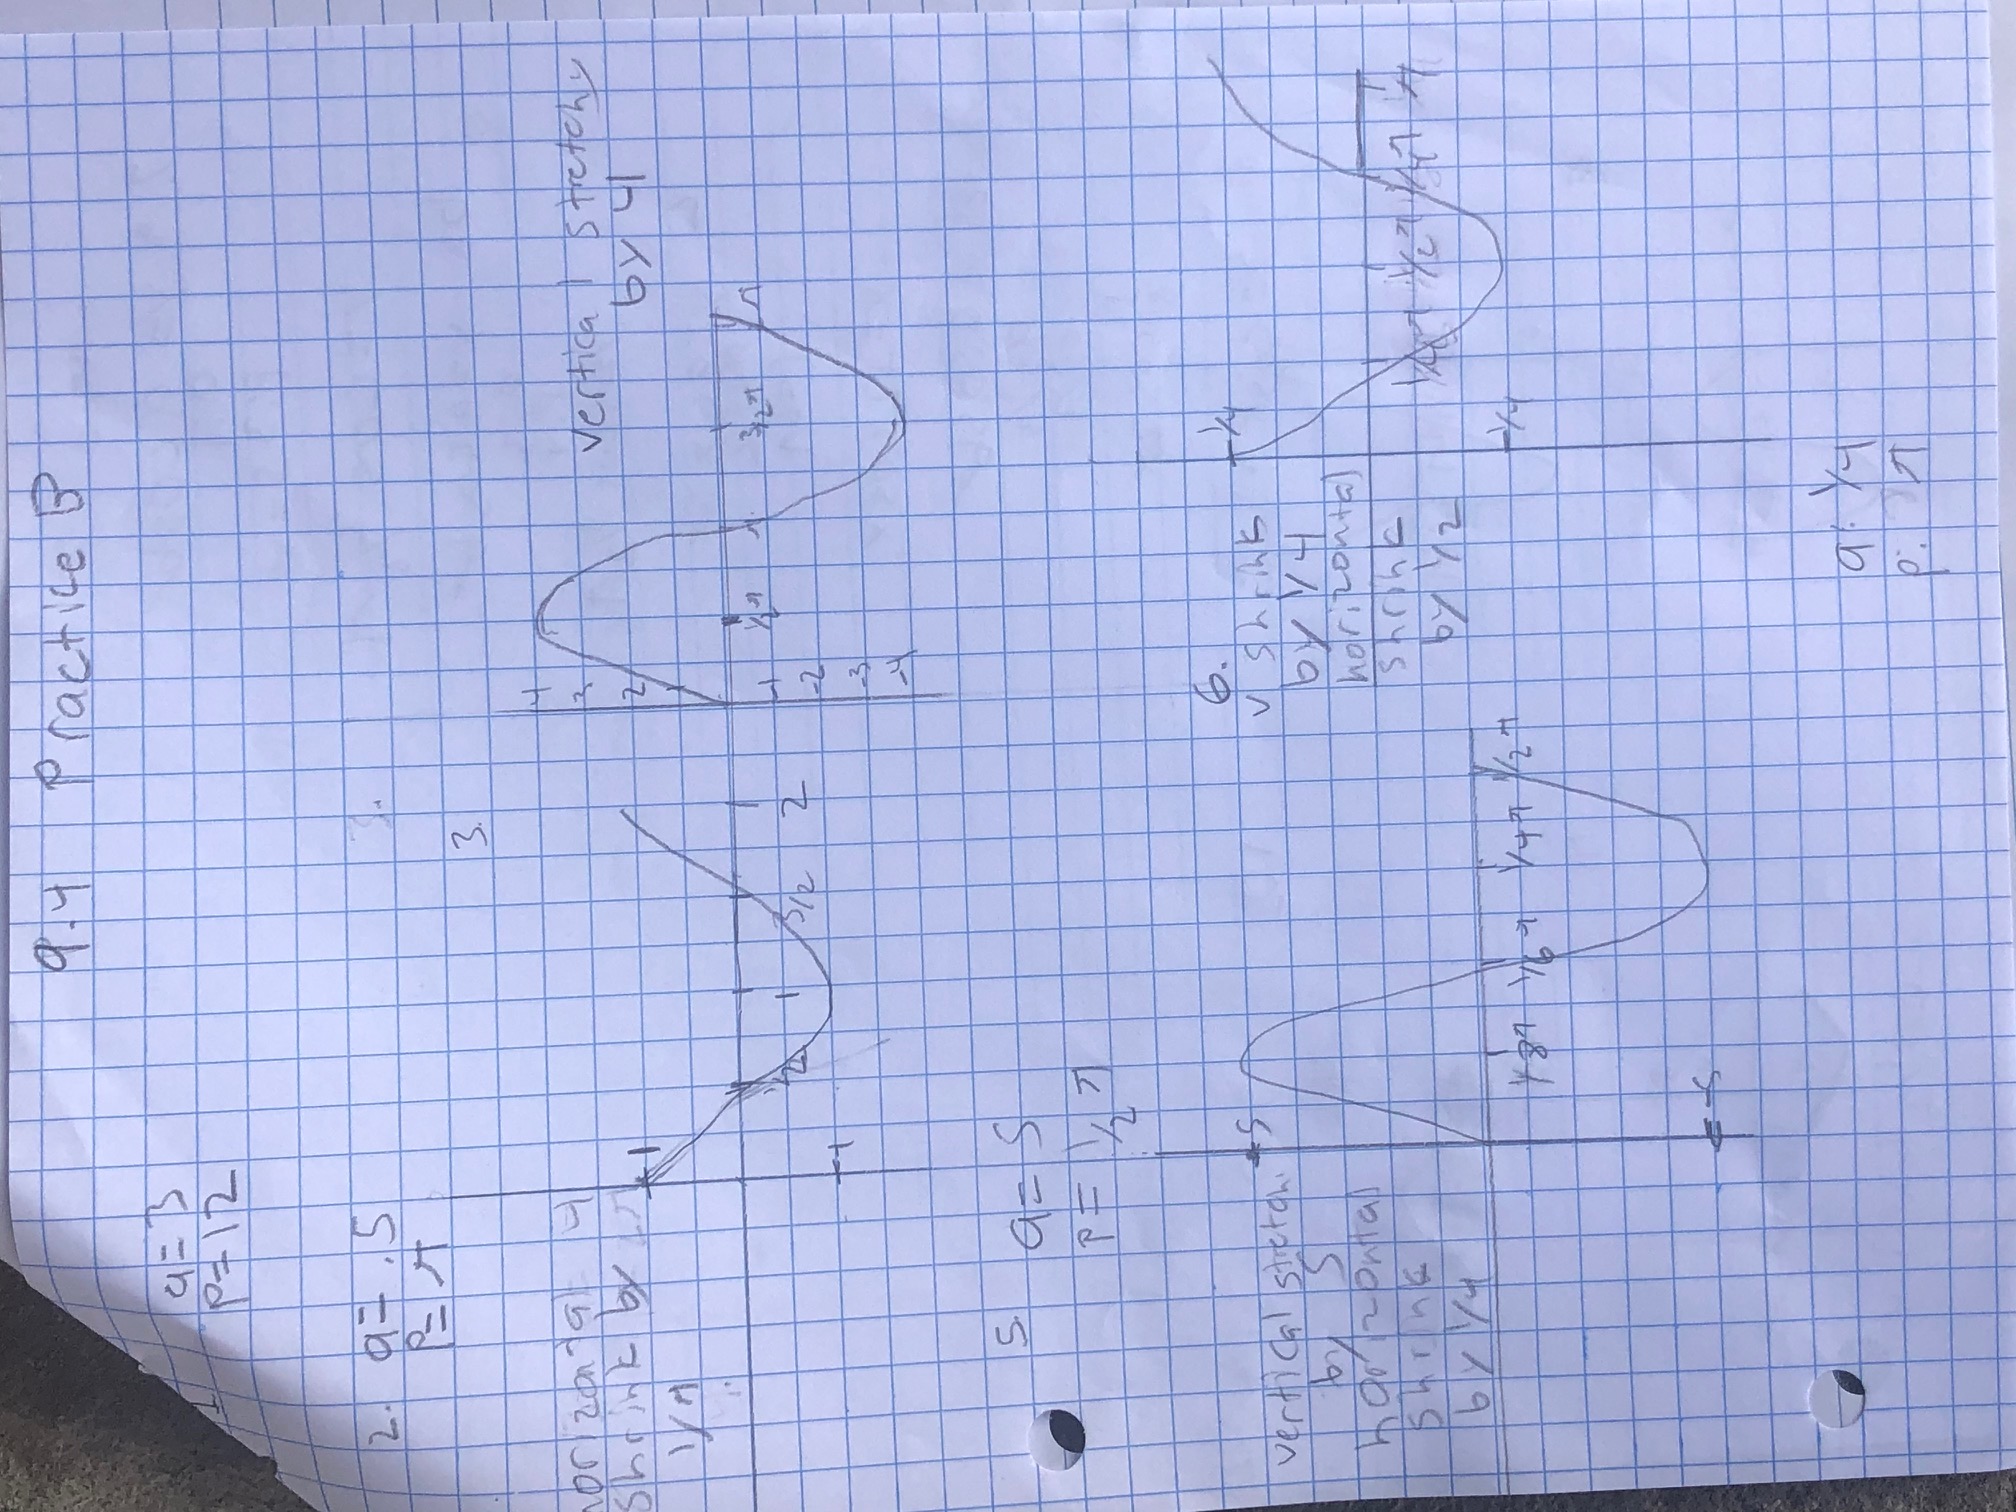 9.4 Practice B
1
a= 3
p= 12
2. a= .5
P= π
3.
3.
horizontal
shrink by
1/π
4
1
-1
1/2
1
3/2
2
4
3
2
1
-1
-2
-3
-4
1/2 π
π
3/2 π
vertical stretch
by 4
5. a= 5
P= 1/2 π
vertical stretch
by 5
horizontal
shrink
by 1/4
5
-5
1/8 π
1/6 π
1/4 π
1/2 π
6.
v shrink
by 1/4
horizontal
shrink
by 1/2
1/4
-1/4
1/2 π
π
a: 1/4
p: π